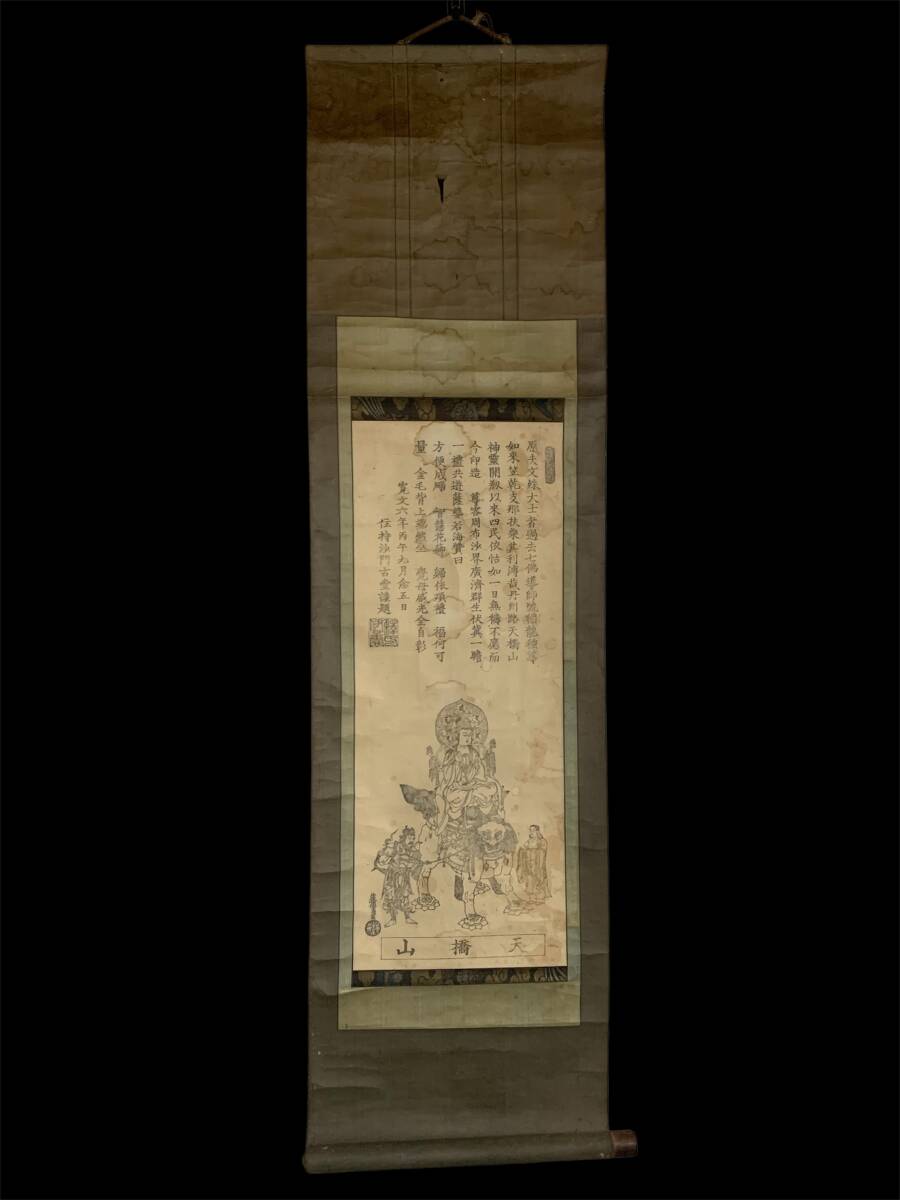 原夫文殊大士者過去七佛導師號稱龍種尊
如來竺乾支那扶桑其利溥哉丹州路天橋山
神靈開叡以來四民依怙如一日無禱不應而
今印造 尊容周布沙界廣濟群生伏冀一瞻
一禮共遊薩婆若海贊曰
方便成 智慧花 歸依頂禮 福何可
量 金毛背上 坐 覺母威光全自彰
寛文六年丙午九月念五日
住持沙門古 謹題
天橋山